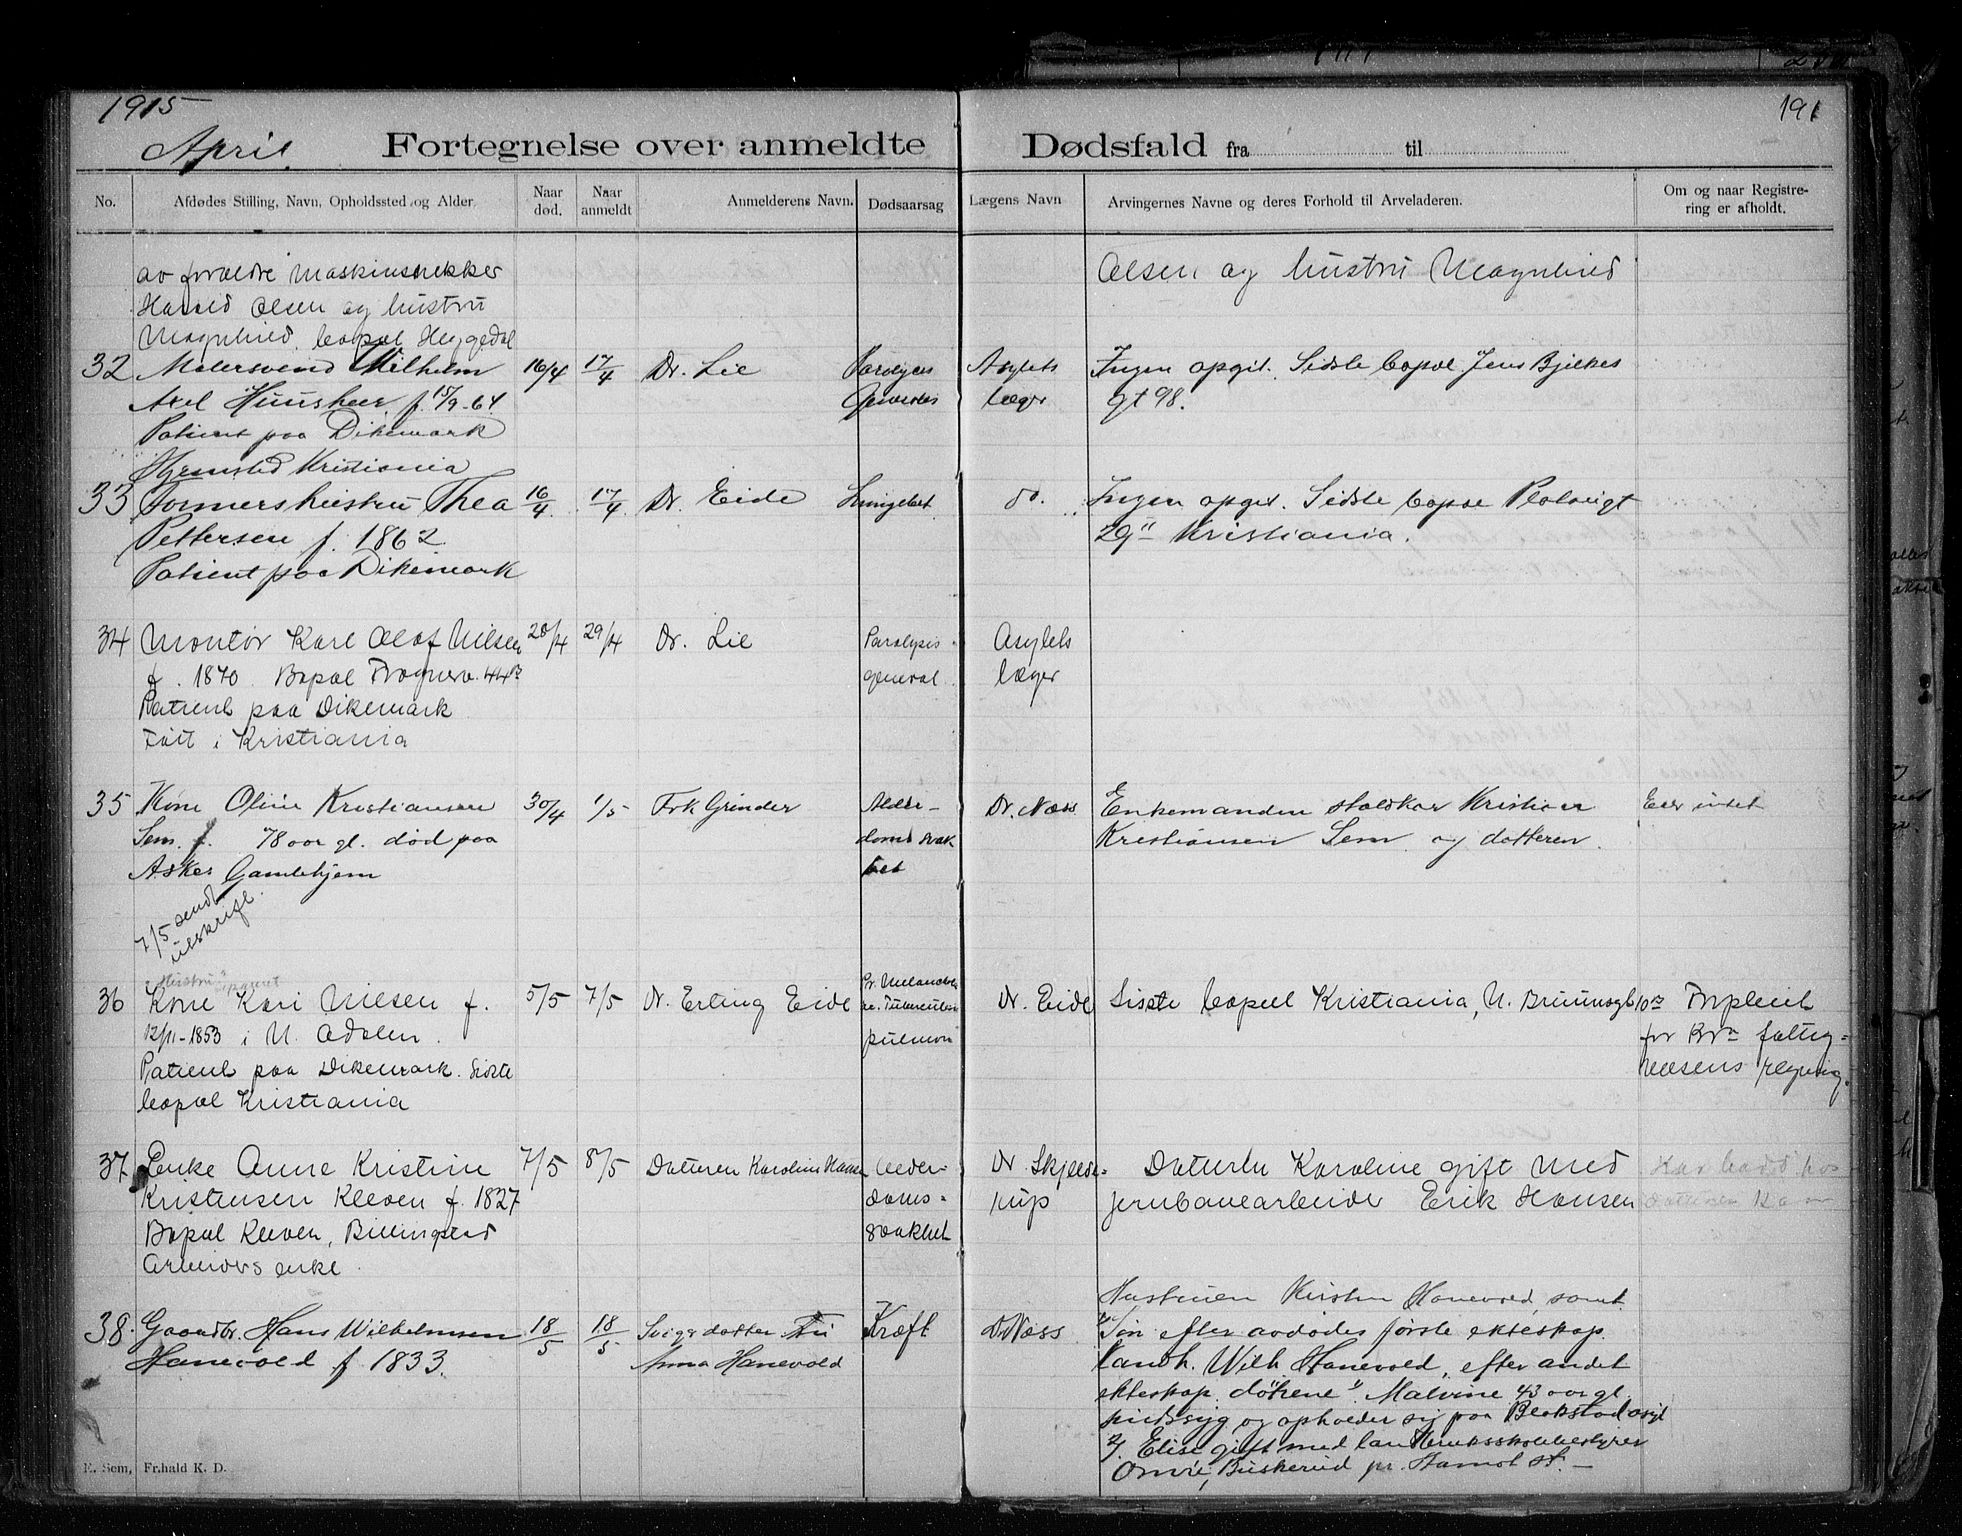 1915
191
April
Fortegnelse over anmeldte Dødsfald fra til
No. Afdødes Stilling, Navn, Opholdssted og Alder. Naar død. Naar anmeldt Anmelderens Navn. Dødsaarsag Lægens Navn Arvingernes Navne og deres Forhold til Arveladeren. Om og naar Registrering er afholdt.
av foreldre
Harald Olsen og hustru
Magnhild, bopæl Heggedal
Olsen og hustru Magnhild
32 Malersvend Wilhelm 16/4 17/4 Dr. Lie Asylets Ingen opgit. Sidste bopæl Jens Bjelkes
Axel f. 15/9-64 læger gt 98.
Patient paa Dikemark
Hjemsted Kristiania
33 Formershustru Thea 16/4 17/4 Dr. Eide do. Ingen opgit. Sidste bopæl
Pettersen f. 1862 Kristiania.
Patient paa Dikemark
34 Montør Karl Olaf Nilsen 28/4 29/4 Dr. Lie Paralysis Asylets
f. 1870 Bopæl Frognerv. 44B general læger
Patient paa Dikemark
Født i Kristiania
35 Kone Oline Kristiansen 30/4 1/5 Frk Grinder Alder- Dr. Næss Enkemanden Kristian Eier intet
Sem f. 78 aar gl. død paa domssvak Kristiansen Sem og datteren.
Asker Gamlehjem het
7/5 sendt
utskrift
Hustru
36 Kone Kari Nilsen f. 5/5 7/5 Dr. Erling Eide Dr. Eide Sidste bopæl Kristiania, N. Forpleiet
12/11-1853 i N. Adalen. for Kra fattig-
Patient paa Dikemark. Sidste pulmon væsens regning.
bopæl Kristiania
37 Enke Anne Kristine 7/5 8/5 Datteren Karoline Hansen Alder- Dr. Skjelde- Datteren Karoline gift med Har bodd hos
Kristensen Kleven f. 1827 doms- rup jernbanearbeider Erik Hansen datteren
Bopæl Kleven, Billingstad svakhet
Arbeiders enke
38. Gaardbr. Hans Wilhelmsen 18/5 18/5 Svigerdatter Fru Kræft Dr Næss Hustruen Kirsten Hanevold, samt
Hanevold f 1833. Anna Hanevold Søn efter avdødes første ekteskap.
Landh. Wilh. Hanevold, efter andet
ekteskap døtrene 1/ Malvine 43 aar gl.
sindssyg og opholder sig paa Blakstad asyl
2/ Elise gift med landbruksskolebestyrer
Omvik, Buskerud pr. Hamol St. —
E. Sem, Fr.hald K. D.